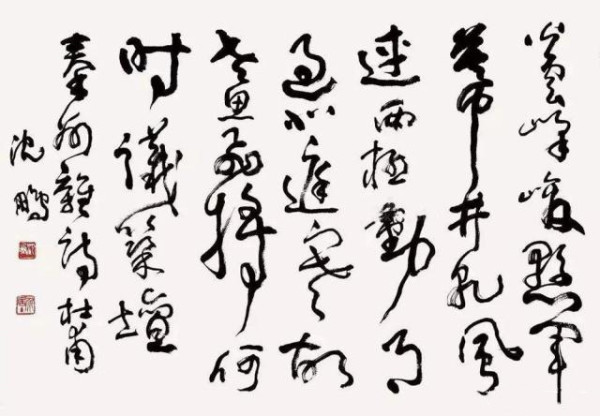 火雲峰峻懸軍
幕井乾風
連西極動月
過北庭寒故
老思飛將何
时議築壇
秦州雜詩杜甫
沈鵬